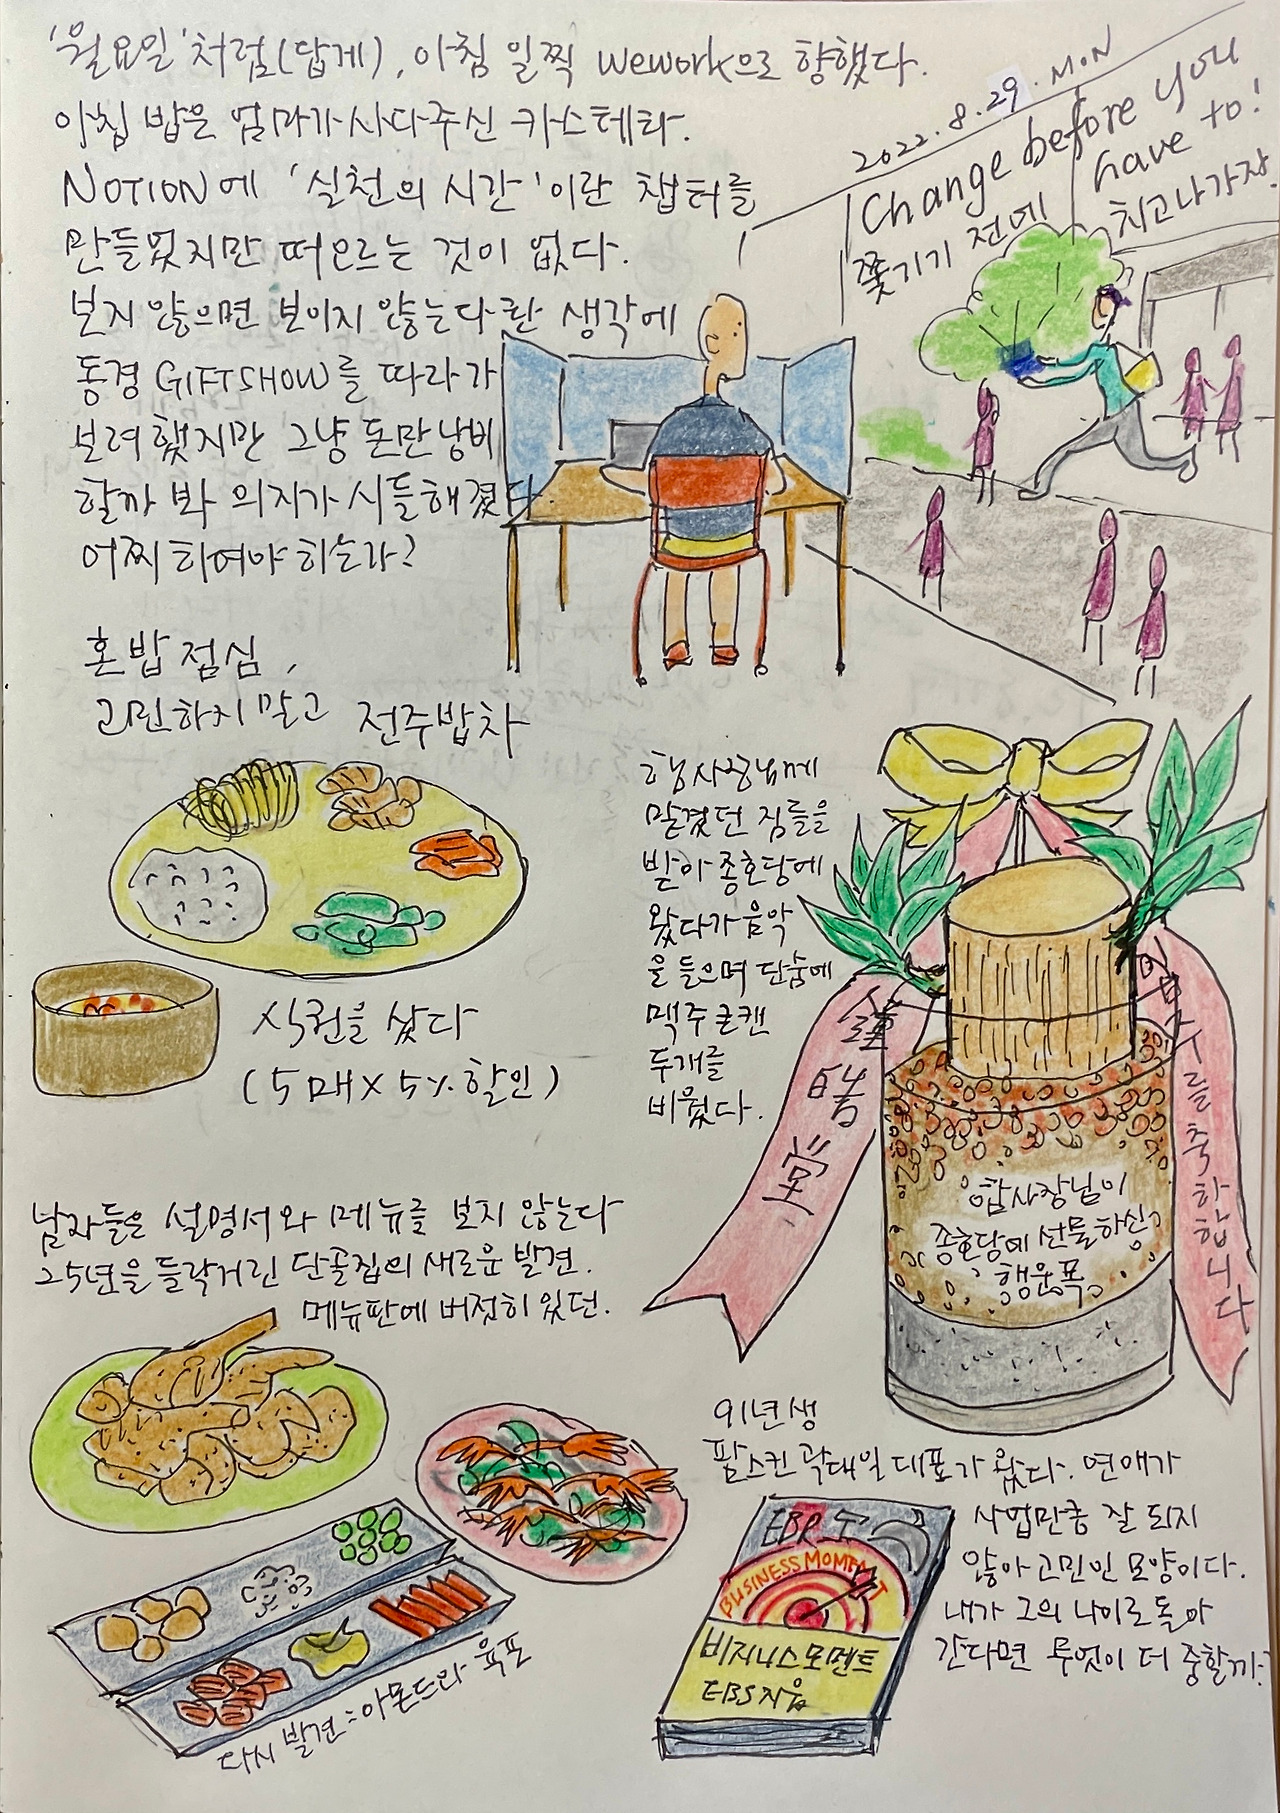 '월요일'처럼(답게), 아침 일찍 wework으로 향했다.
아침 밥은 엄마가 사다주신 카스테라.
NOTION에 '실천의 시간'이란 챕터를
만들었지만 떠오르는 것이 없다.
보지 않으면 보이지 않는다란 생각에
동경 GIFTSHOW를 따라가
보려 했지만 그냥 돈만 낭비
할까 봐 의지가 시들해졌다
어찌하여야 하는가?
2022.8.29.MON
Change before you
have to!
쫓기기 전에
치고나가자.
혼밥 점심,
고민하지 말고 전주밥차
식권을 샀다
(5매 x 5% 할인)
사장님께
맡겼던 짐들을
받아 종호당에
왔다가 음악
을 들으며 단숨에
맥주 큰캔
두개를
비웠다.
鍾皓堂
입주를 축하합니다
합사장님이
종호당에 선물하신
행운목
남자들은 설명서와 메뉴를 보지 않는다
25년을 들락거린 단골집의 새로운 발견.
메뉴판에 버젓히 있던.
다시 발견: 아몬드라 육포
91년생
팜스킨 곽태일 대표가 왔다. 연애가
사업만큼 잘 되지
않아 고민인 모양이다.
내가 그의 나이로 돌아
간다면 무엇이 더 중할까?
BUSINESS MOMENT
비지니스 모멘트
EBS지음